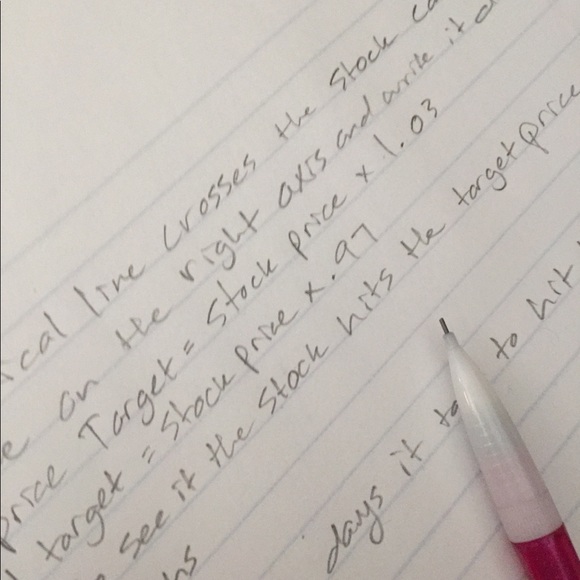 ical line crosses the stock
e on the right axis and write it
price Target = Stock price x 1.03
target = Stock price x .97
see if the stock hits the target price
hs
days it ta to hit